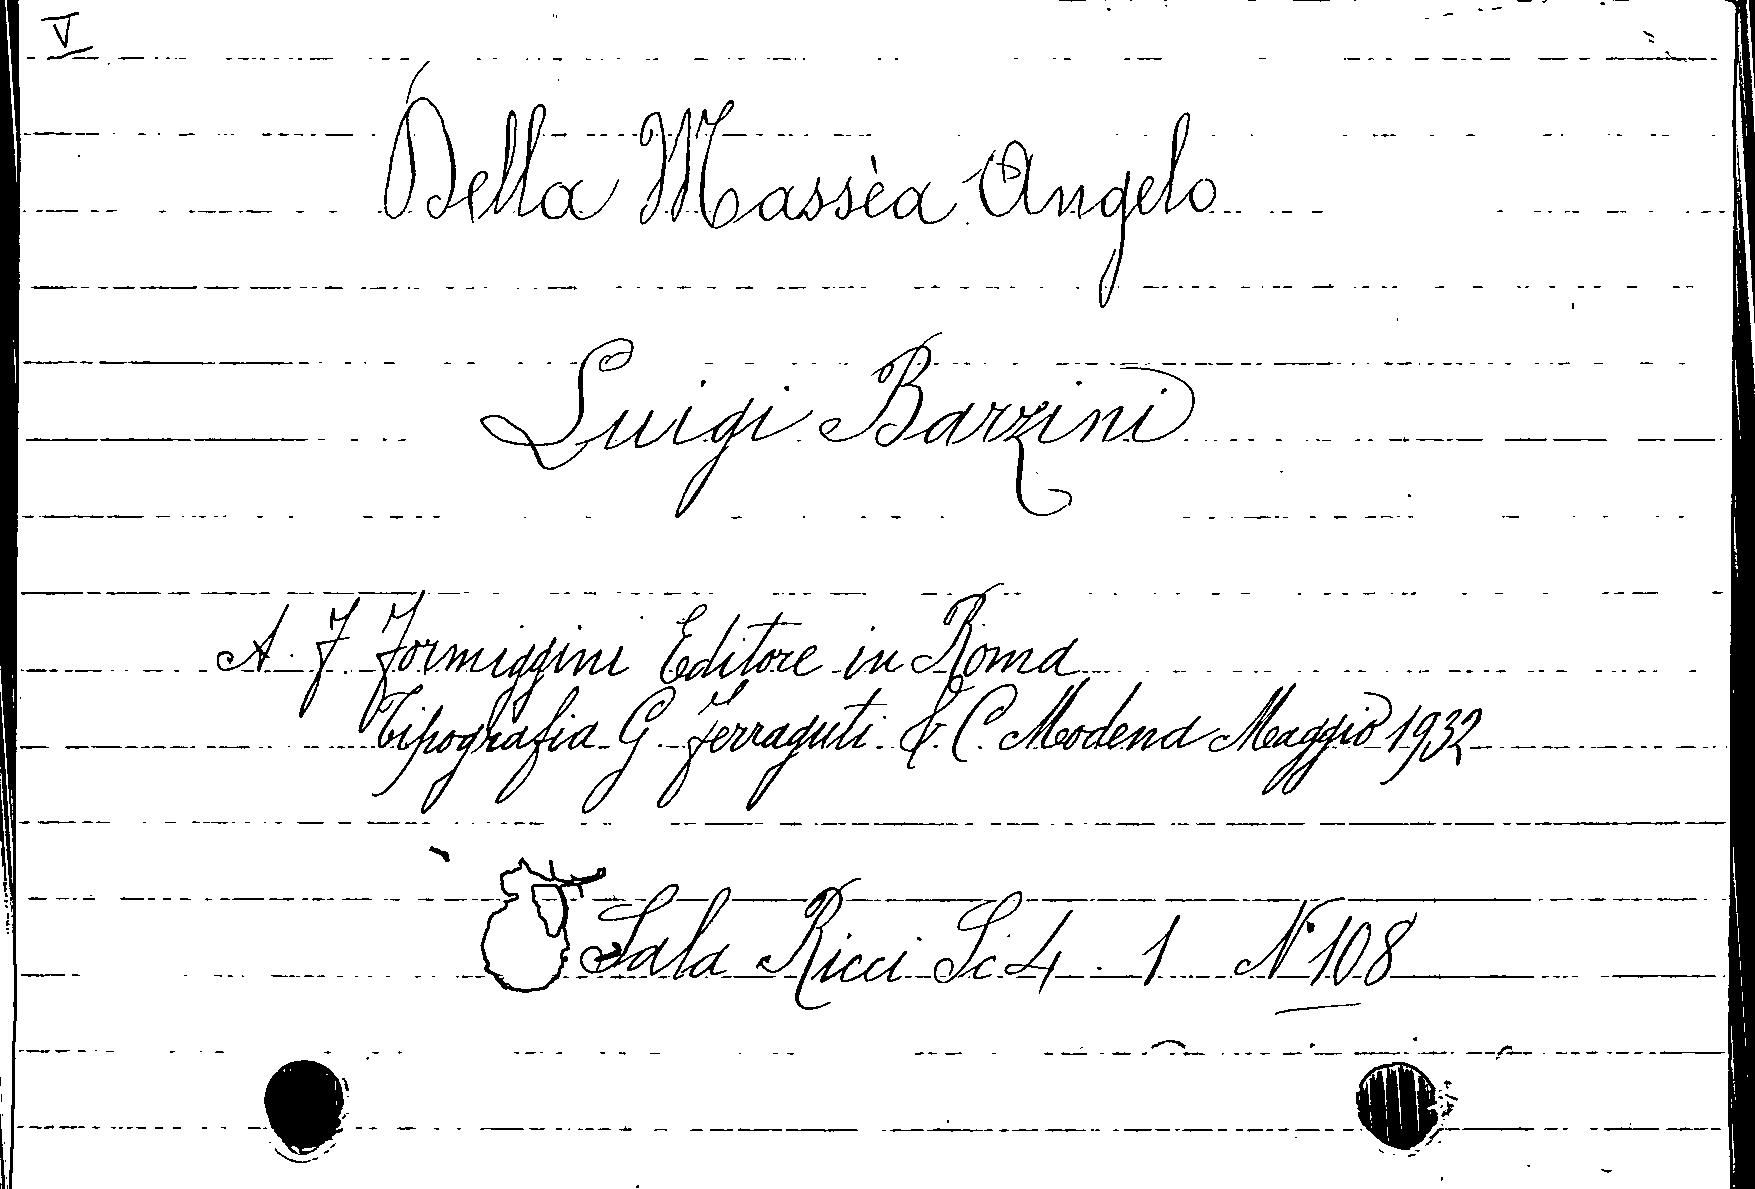 V
Della Massèa Angelo
Luigi Barzini
A. F. Formiggini Editore in Roma
Tipografia G. Ferraguti & C. Modena Maggio 1932
Sala Ricci Sc 4 . 1 N. 108